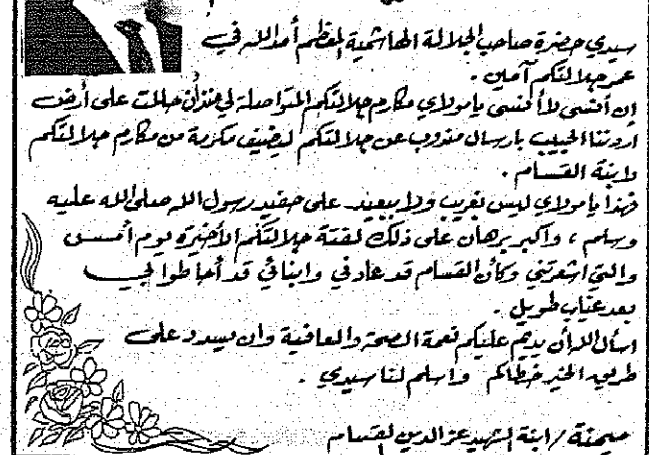 سيدي حضرة صاحب الجلالة الهاشمية المعظم أمد الله في
عمر جلالتكم آمين .
إن أنسى لا أنسى يا مولاي مكارم جلالتكم المتواصلة لي منذ أن حللت على أرض
اردننا الحبيب بارسال مندوب عن جلالتكم ليضيف مكرمة من مكارم جلالتكم
لابنة القسام .
فهذا يا مولاي ليس بغريب ولا ببعيد على حفيد رسول الله صلى الله عليه
وسلم ، وأكبر برهان على ذلك لفتة جلالتكم الأخيرة يوم أمس
والتي اشعرتني وكأن القسام قد عاد في وابنائي قد أحاطوا بي
بعد غياب طويل .
اسأل الله أن يديم عليكم نعمة الصحة والعافية وان يسدد على
طريق الخير خطاكم واسلم لنا سيدي .
ميمنة / ابنة الشهيد عز الدين القسام